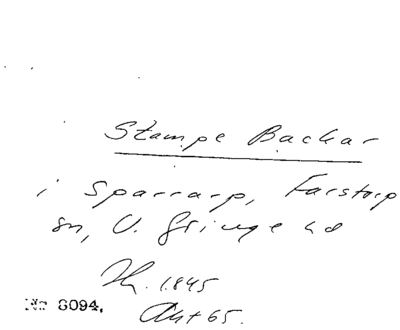 Stampe Backar
i Sparrarp, Farstorp
sn, V. Göinge hd
Th. 1845
Akt 65.
No 8094.